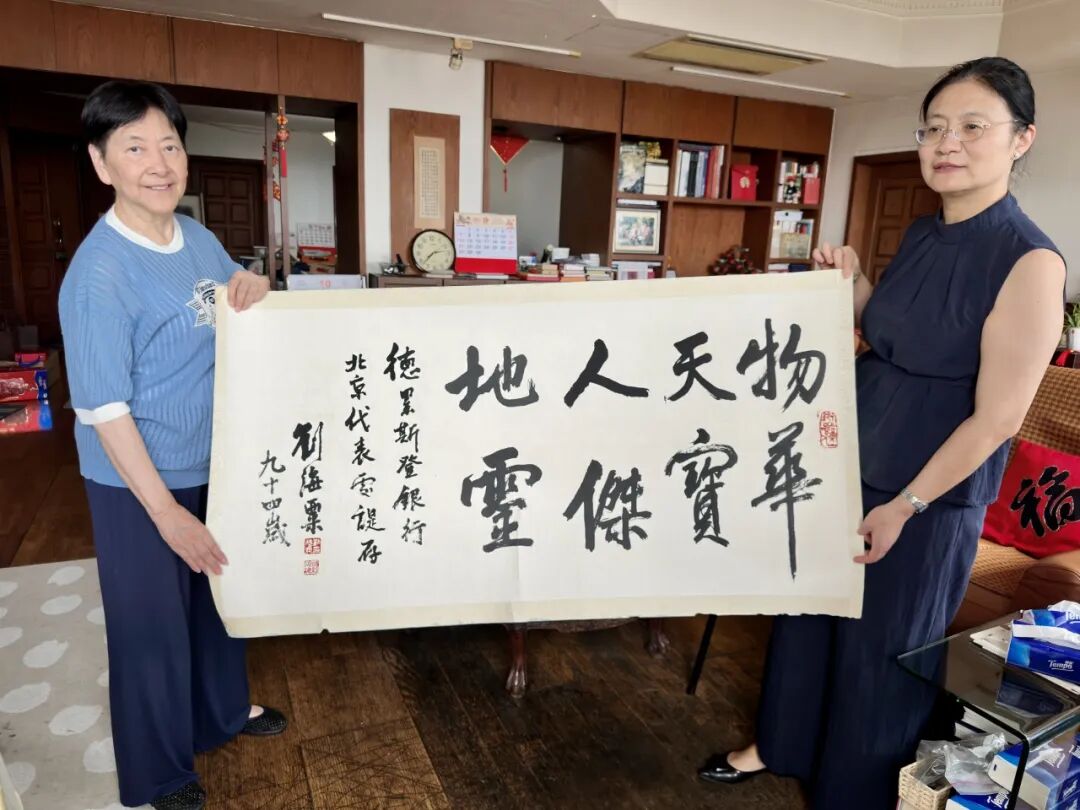 物華
天寶
人傑
地靈
德累斯登銀行
北京代表
存
劉海粟
九十四歲
福
Tempo
10